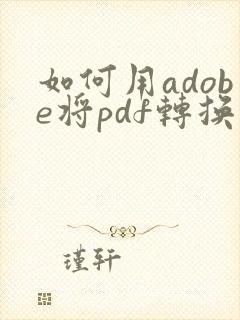 如何用adob
e将pdf轉换
瑾轩